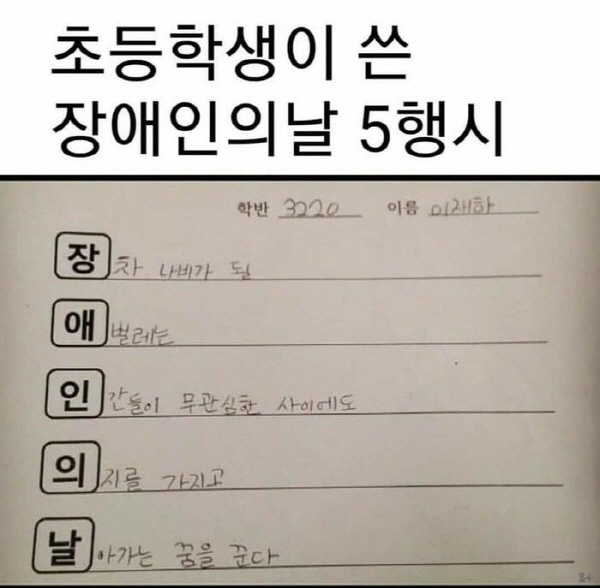 초등학생이 쓴
장애인의날 5행시
학반 3220 이름 이재하
장차 나비가 될
애벌레는
인간들이 무관심한 사이에도
의지를 가지고
날아가는 꿈을 꾼다